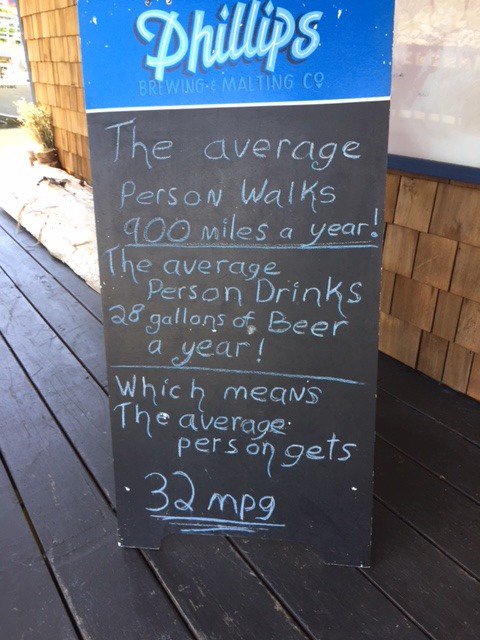 Phillips
BREWING & MALTING CO
The average
Person Walks
900 miles a year!
The average
Person Drinks
28 gallons of Beer
a year!
Which means
The average
person gets
32 mpg